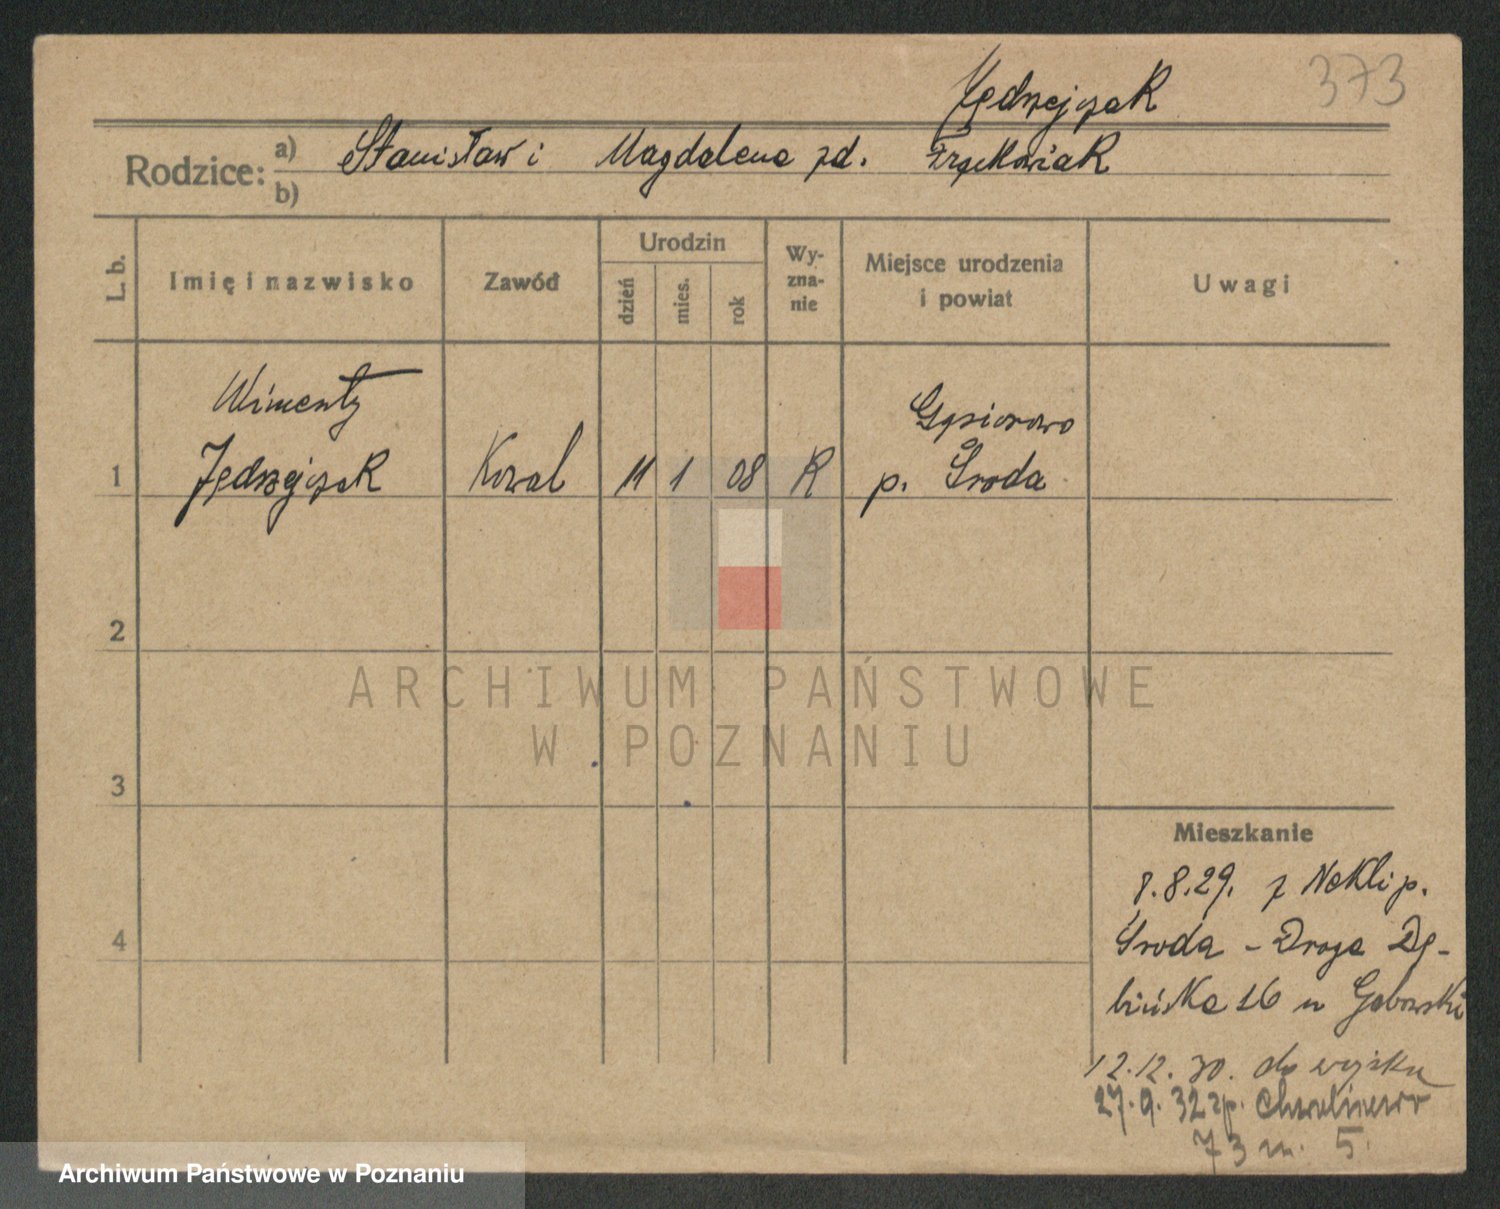 373
Jędrzejczak
Rodzice: a) Stanisław i Magdalena zd. Frąckowiak
b)
L. b.
Imię i nazwisko
Zawód
Urodzin
dzień
mies.
rok
Wy-
zna-
nie
Miejsce urodzenia
i powiat
Uwagi
Wincenty
Jędrzejczak
Kowal
11 1 08 R
Gąsiorowo
p. Środa
1
2
3
4
Mieszkanie
8.8.29. z Nekli p.
Środa - Droga Dę-
bińska 16 u Gabowski
12.12.30. do wojska
27.9.32 zp.
73 m. 5.
ARCHIWUM PAŃSTWOWE
W POZNANIU
Archiwum Państwowe w Poznaniu